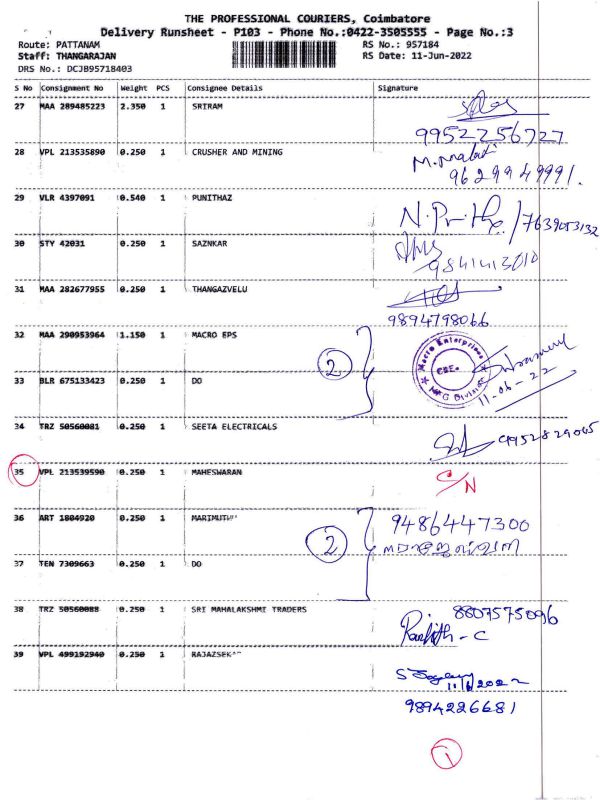 THE PROFESSIONAL COURIERS, Coimbatore
Delivery Runsheet - P103 - Phone No.:0422-3505555 - Page No.:3
Route: PATTANAM RS No.: 957184
Staff: THANGARAJAN RS Date: 11-Jun-2022
DRS No.: DCJB95718403
S No Consignment No Weight PCS Consignee Details Signature
27 MAA 289485223 2.350 1 SRIRAM
9952256727
28 VPL 213535890 0.250 1 CRUSHER AND MINING M. Malati
9629949991.
29 VLR 4397091 0.540 1 PUNITHAZ /7639053132
30 STY 42031 0.250 1 SAZNKAR
9841413010
31 MAA 282677955 0.250 1 THANGAZVELU
9894798066
32 MAA 290953964 1.150 1 MACRO EPS
2 Macro Enterprises CBE. MFG Division
33 BLR 675133423 0.250 1 DO 11-06-22
34 TRZ 50560081 0.250 1 SEETA ELECTRICALS 9952829065
35 VPL 213539590 0.250 1 MAHESWARAN C/N
36 ART 1804920 0.250 1 MARIMUTH 9486447300
2
37 TEN 7309663 0.250 1 DO
38 TRZ 50560088 0.250 1 SRI MAHALAKSHMI TRADERS 8807575096
Ranjith - C
39 VPL 499192940 0.250 1 RAJAZSEK
11/6/2022
9894226681
1